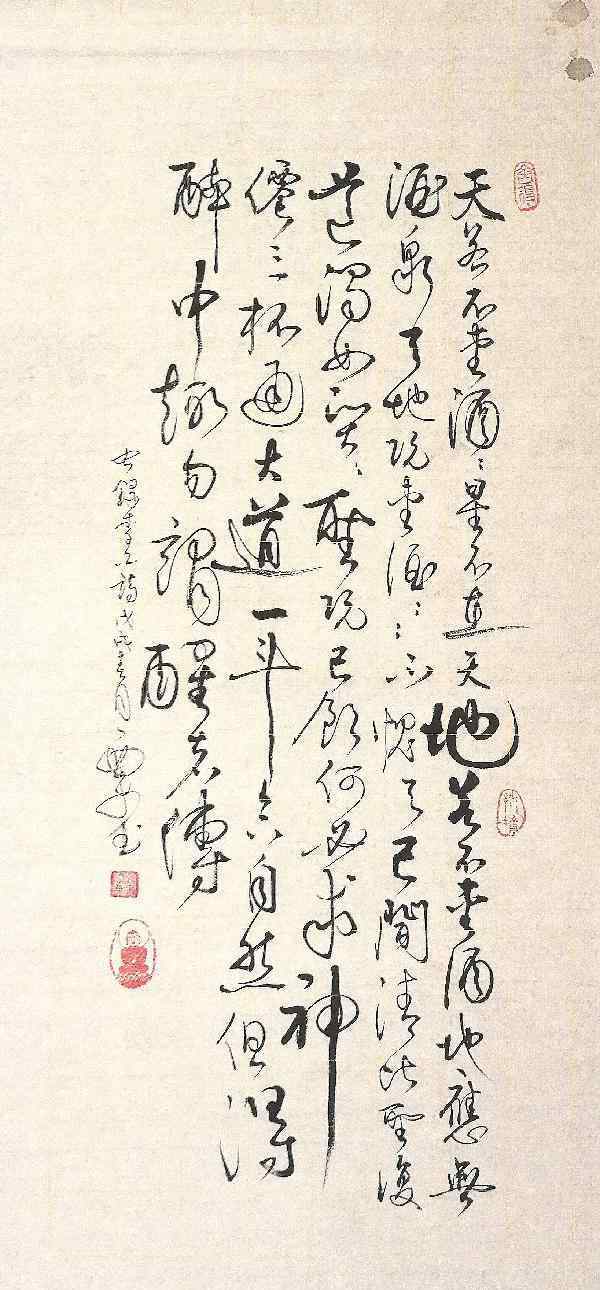 天若不愛酒〻星不在天地若不愛酒地應無
酒泉天地既愛酒〻〻不愧天已聞清比聖復
道濁如賢〻聖既已飲何必求神
僊三杯通大道一斗合自然但得
醉中趣勿謂醒者傳
右錄李白詩戊戌春月